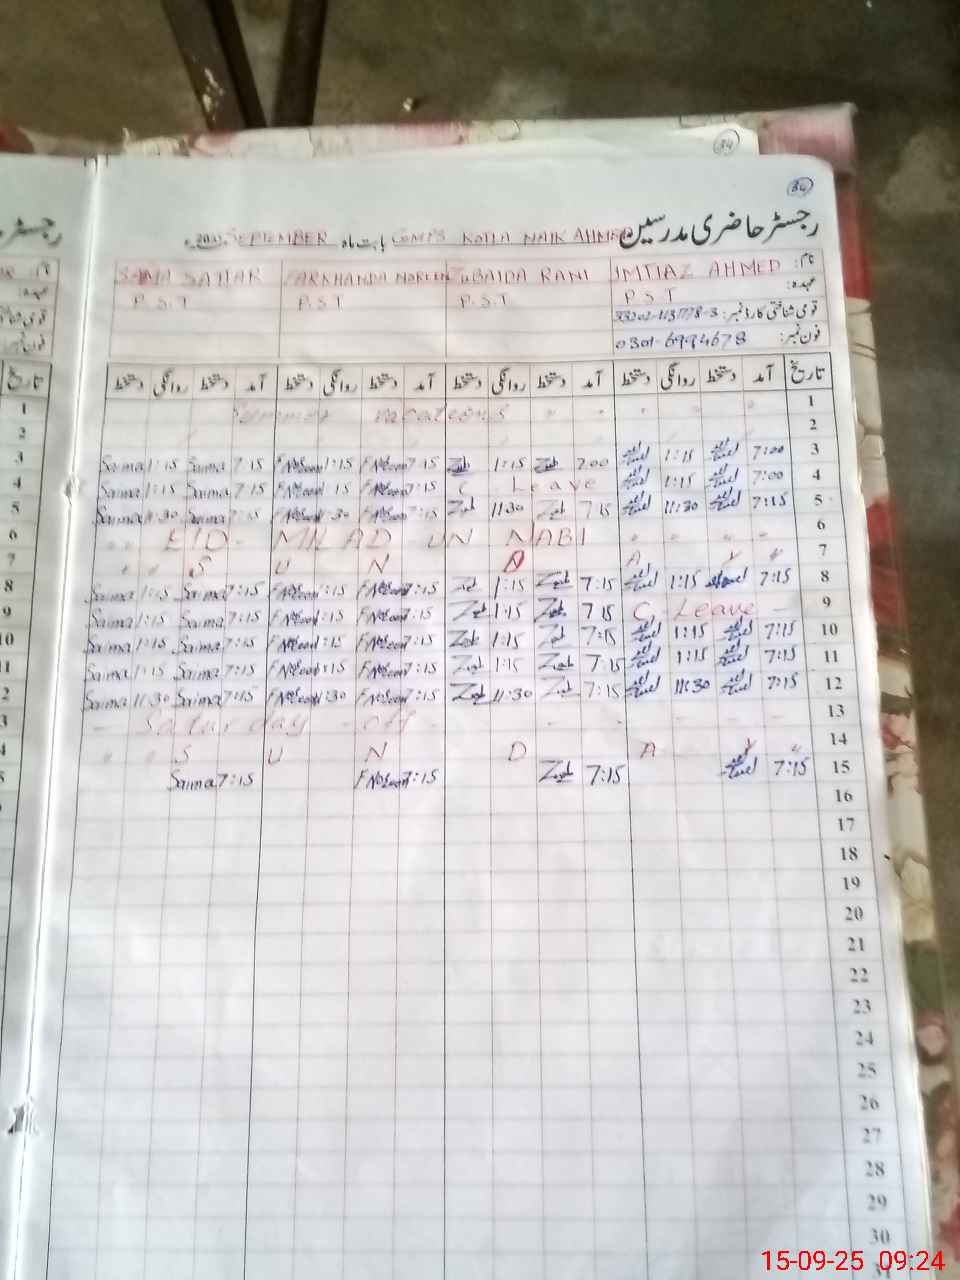 34
34
رجسٹر حاضری مدرسین GMPS KOTLA NAIK AHMED بابت ماہ SEPTEMBER
نام: IMTIAZ AHMED ZUBAIDA RANI FARKHANDA NOREEN SAIMA SAHAR
عہدہ: P.S.T P.S.T P.S.T P.S.T
قومی شناختی کارڈ نمبر:
فون نمبر: 0301-6994678
تاریخ آمد دستخط روانگی دستخط آمد دستخط روانگی دستخط آمد دستخط روانگی دستخط آمد دستخط روانگی دستخط
1 Summer vacations
2
Saima 1:15 Saima 7:15 FNoreen 1:15 FNoreen 7:15 1:15 7:00 1:15 7:00 3
Saima 1:15 Saima 7:15 FNoreen 1:15 FNoreen 7:15 C. Leave 1:15 7:00 4
Saima 11:30 Saima 7:15 FNoreen 11:30 FNoreen 7:15 11:30 7:15 11:30 7:15 5
EID - MILAD - UN NABI 6
S U N D A Y 7
Saima 1:15 Saima 7:15 FNoreen 1:15 FNoreen 7:15 1:15 7:15 1:15 7:15 8
Saima 1:15 Saima 7:15 FNoreen 1:15 FNoreen 7:15 1:15 7:15 C. Leave - 9
Saima 1:15 Saima 7:15 FNoreen 1:15 FNoreen 7:15 1:15 7:15 1:15 7:15 10
Saima 1:15 Saima 7:15 FNoreen 1:15 FNoreen 7:15 1:15 7:15 1:15 7:15 11
Saima 11:30 Saima 7:15 FNoreen 11:30 FNoreen 7:15 11:30 7:15 11:30 7:15 12
- Saturday - off - 13
S U N D A Y 14
Saima 7:15 FNoreen 7:15 7:15 7:15 15
16
17
18
19
20
21
22
23
24
25
26
27
28
29
30
31
15-09-25 09:24